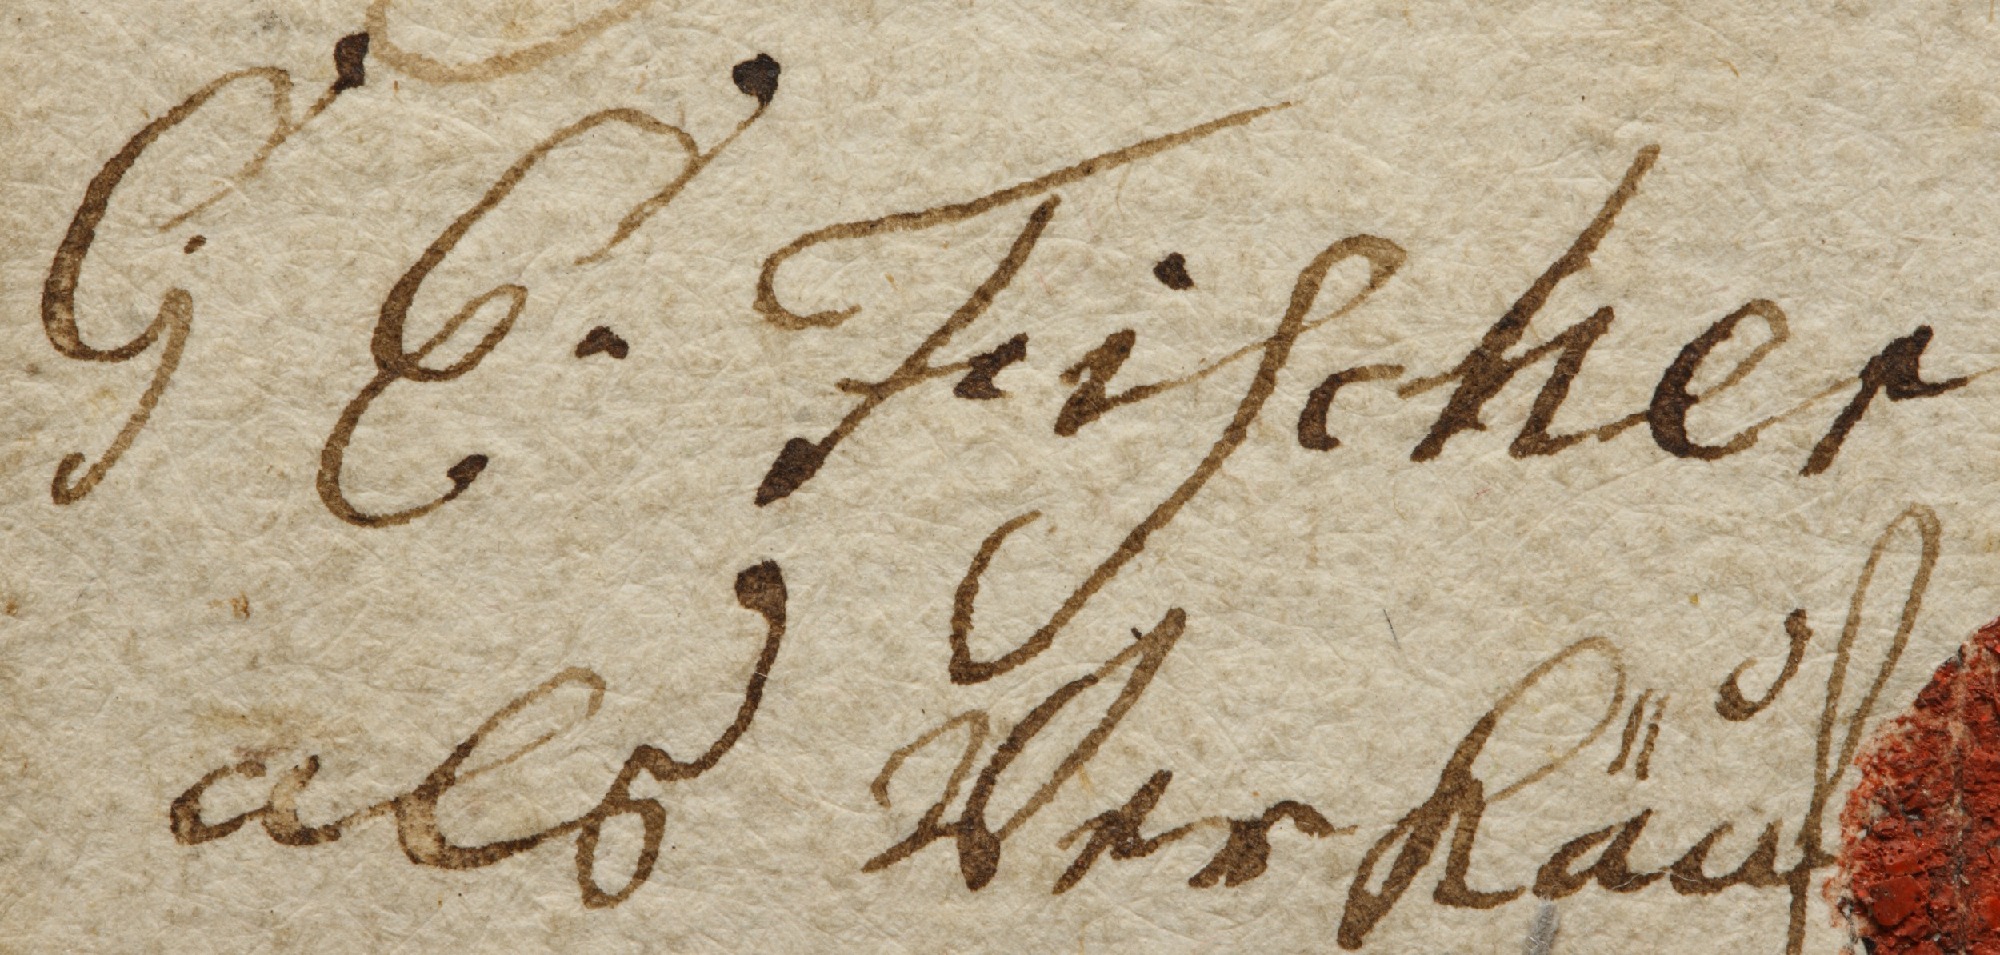 G E. Fischer
als Verkäuf